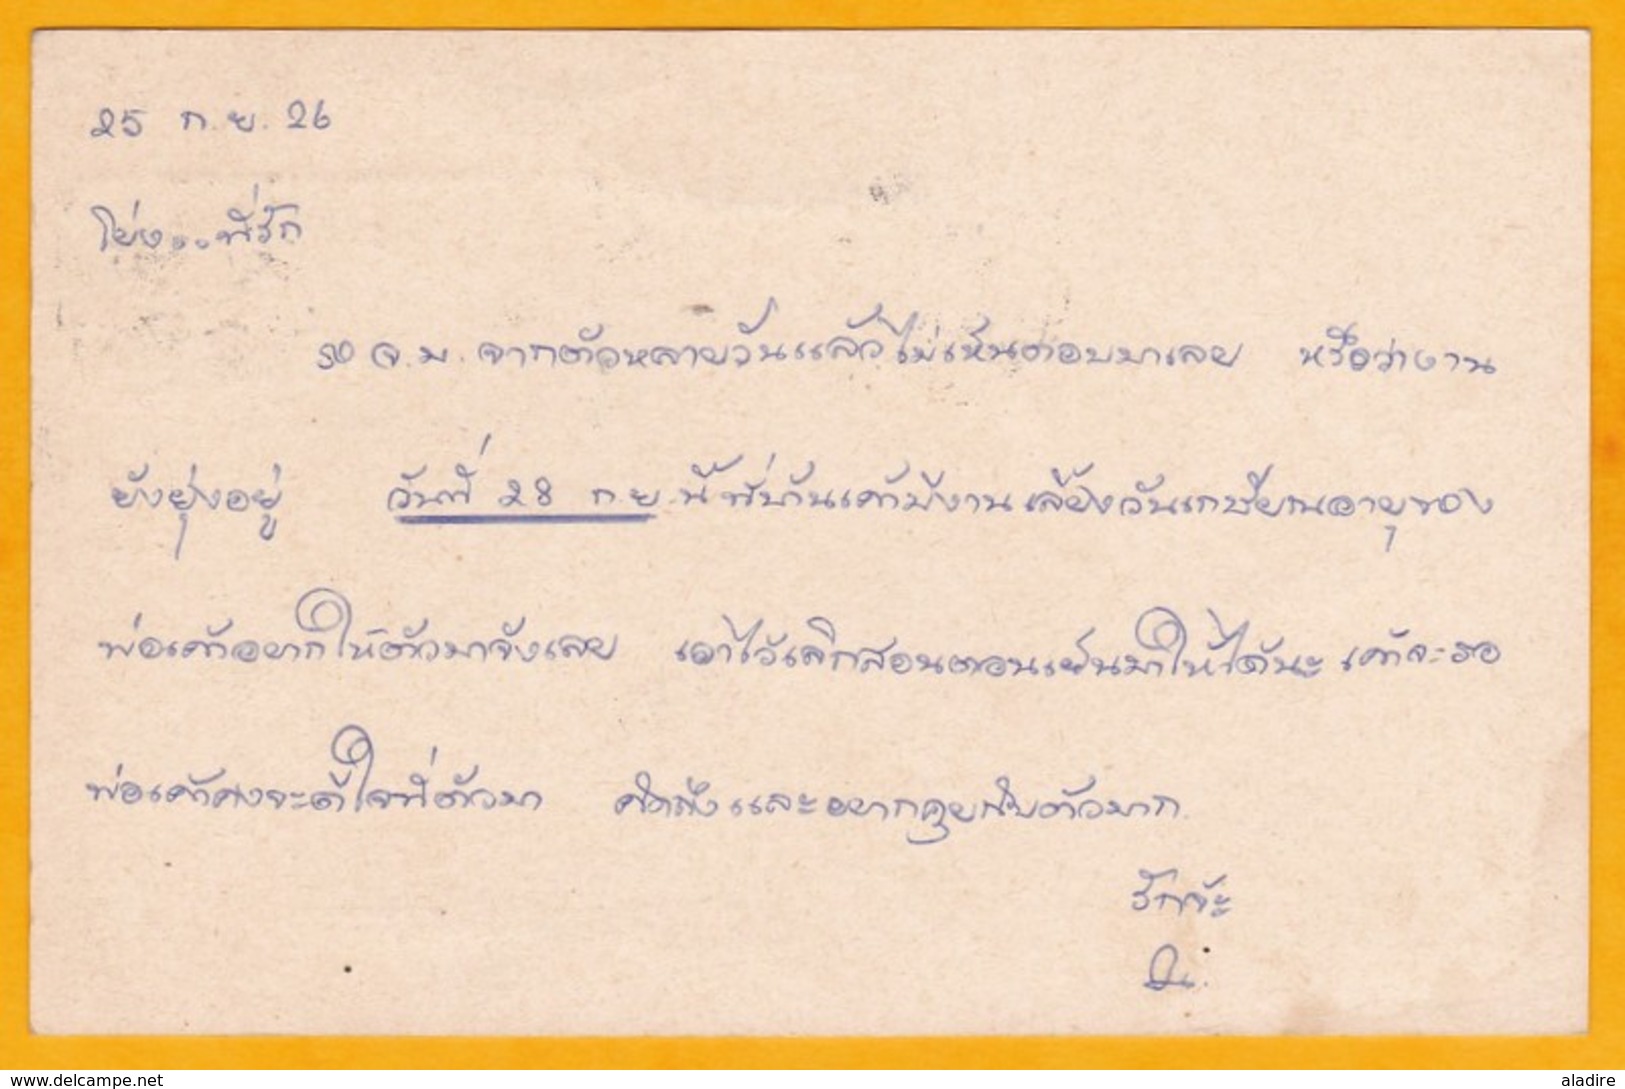 25 ก.ย. 26
โย่ง...ที่รัก
รอ จ.ม. จากตัวหลายวันแล้วไม่เห็นตอบมาเลย หรือว่างาน
ยังยุ่งอยู่ วันที่ 28 ก.ย. นี้ที่บ้านเค้ามีงานเลี้ยงวันเกษียณอายุของ
พ่อเค้าอยากให้ตัวมาจังเลย เอาไว้เลิกสอนตอนเย็นมาให้ได้นะ เค้าจะรอ
พ่อเค้าคงจะดีใจที่ตัวมา คิดถึงและอยากคุยกับตัวมาก
รักจ้ะ
www.delcampe.net
aladire